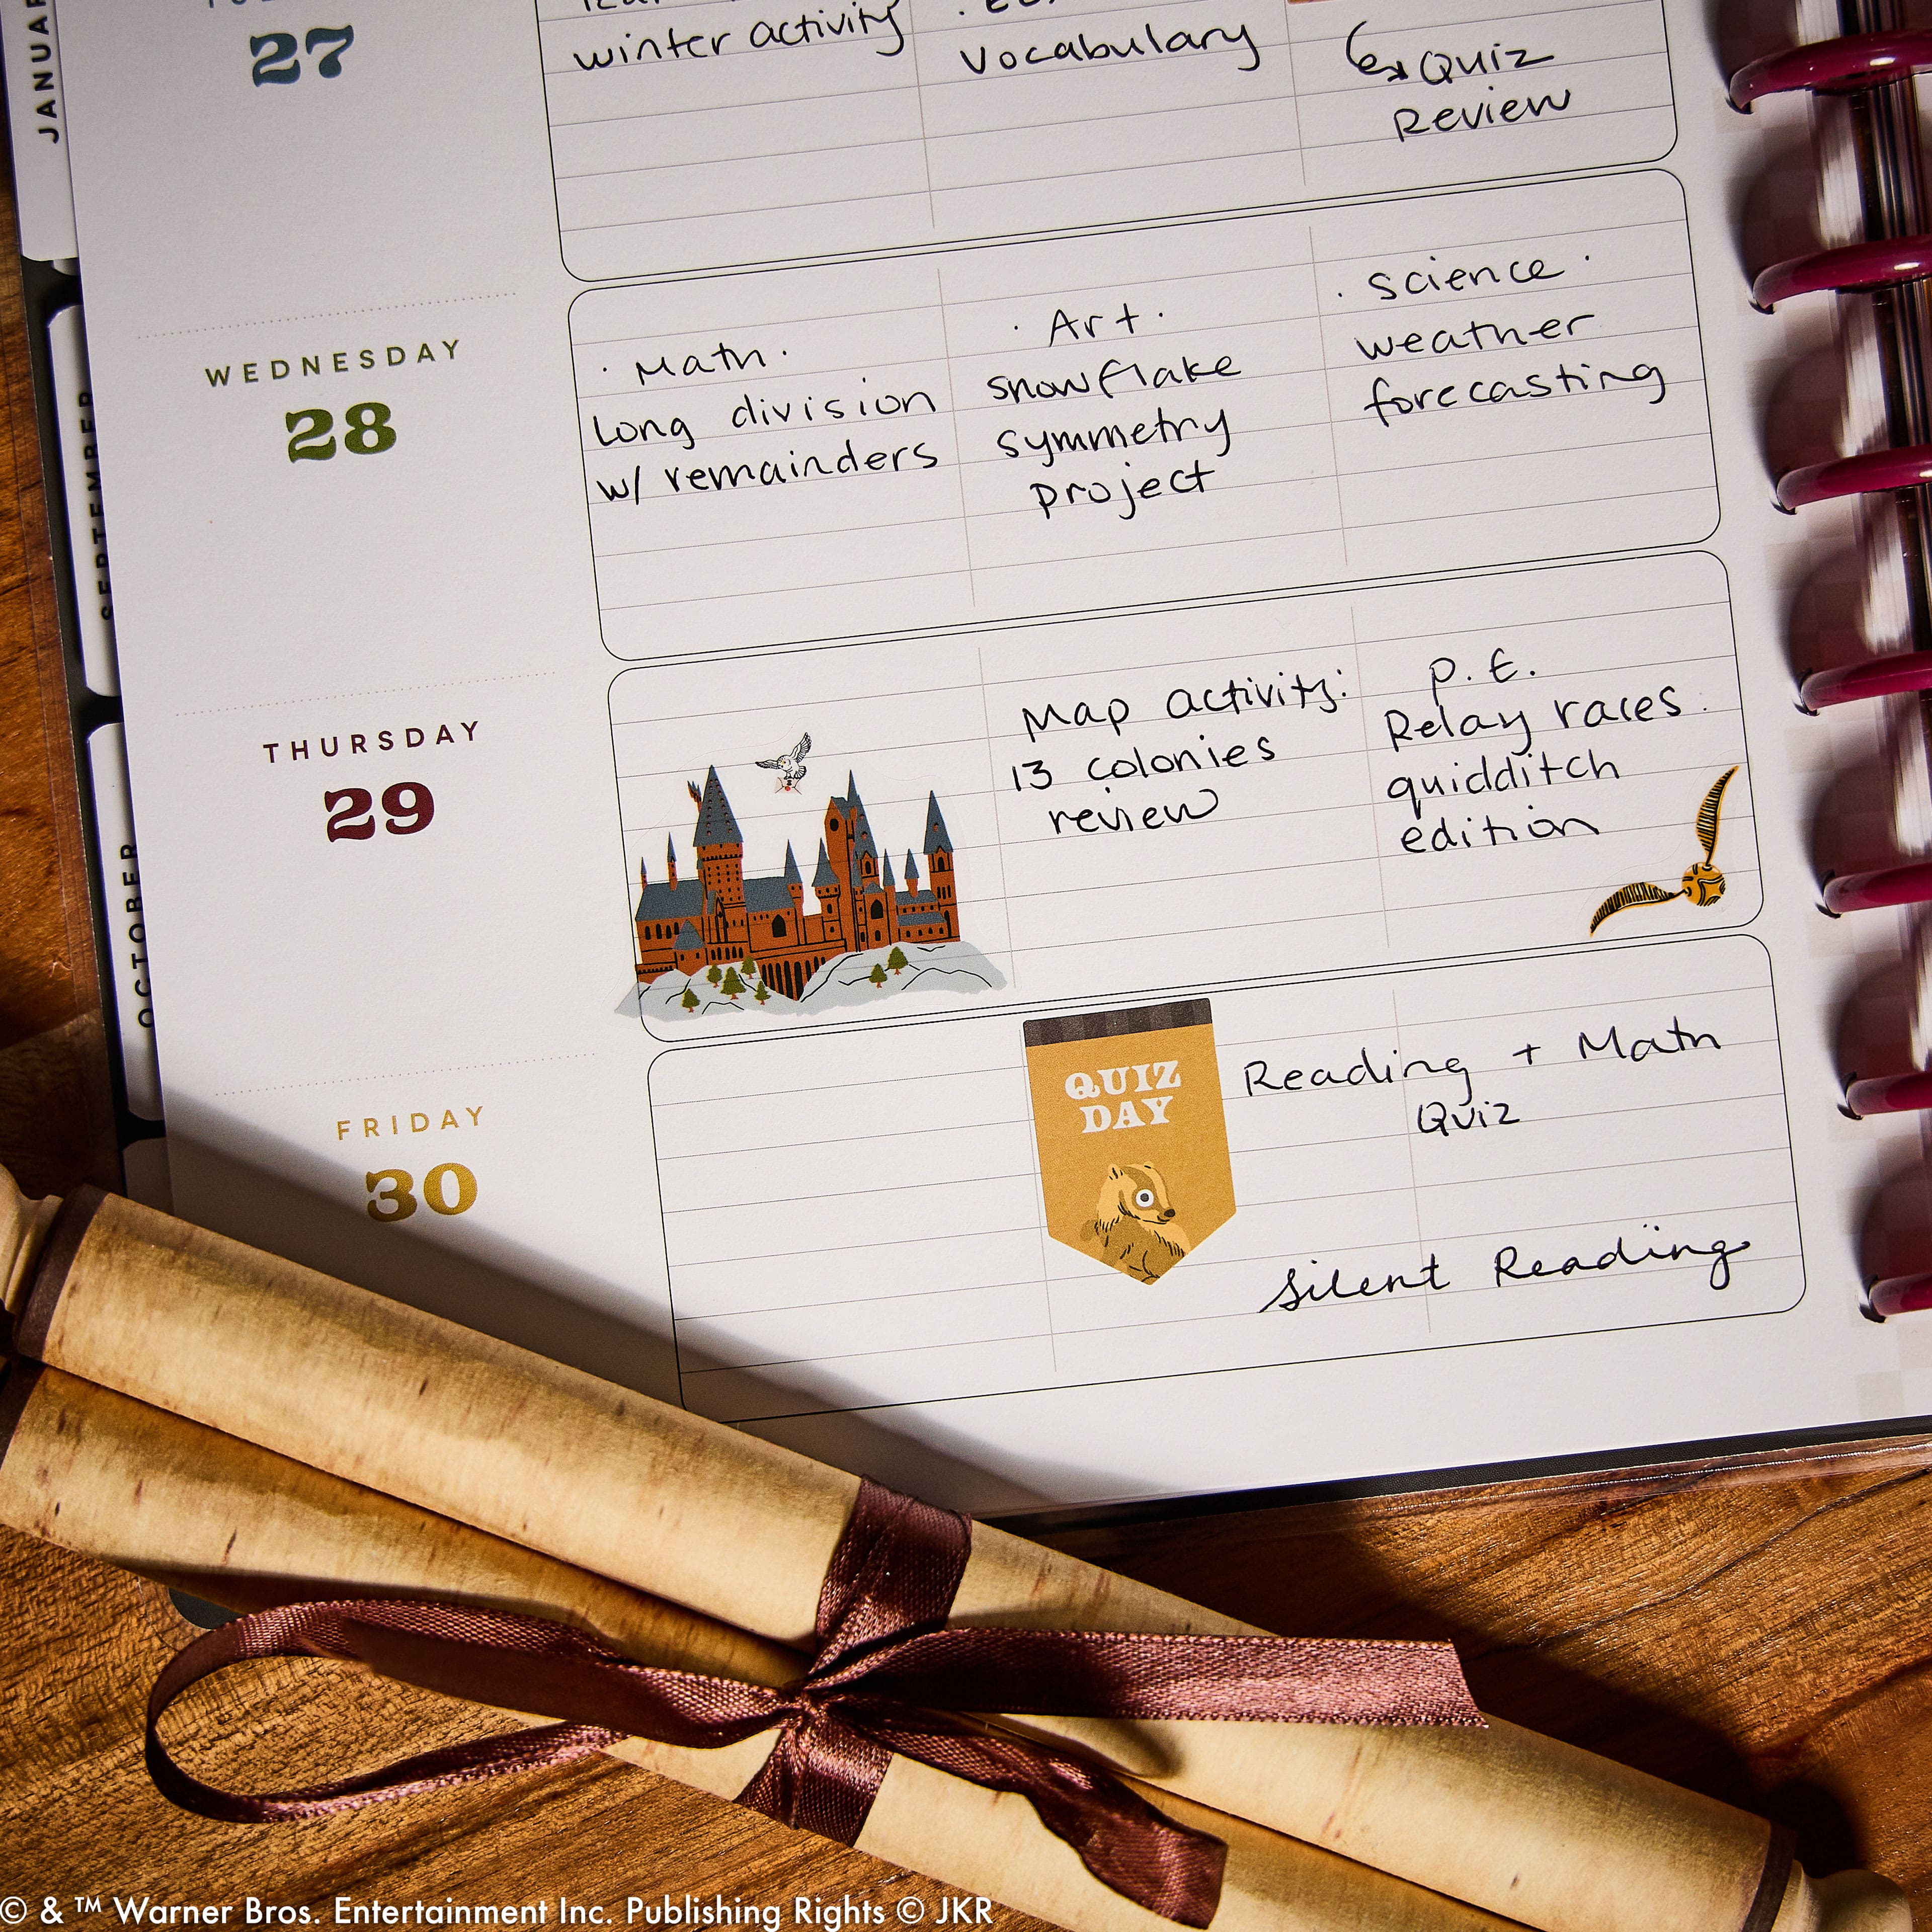 JANUAR
SEPTEMBER
OCTOBER
27
winter activity
vocabulary
Quiz
Review
WEDNESDAY
28
· Math ·
Long division
w/ remainders
· Art ·
snowflake
symmetry
project
· science ·
weather
forecasting
THURSDAY
29
Map activity:
13 colonies
review
P.E.
Relay races:
quidditch
edition
FRIDAY
30
QUIZ
DAY
Reading + Math
Quiz
Silent Reading
© & ™ Warner Bros. Entertainment Inc. Publishing Rights © JKR